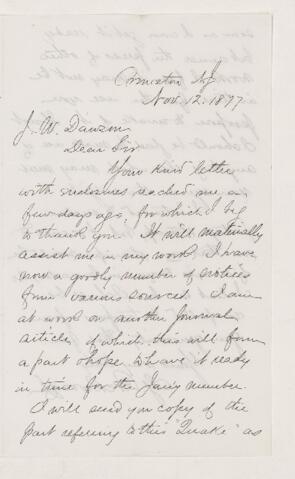 Princeton NJ
Nov. 12. 1897
J. W. Dawson
Dear Sir
Your kind letter
with enclosures reached me a
few days ago, for which I beg
to thank you. It will materially
assist me in my work. I have
now a goodly number of notices
from various sources. I am
at work on another Journal
article of which this will form
a part & hope to have it ready
in time for the Jany number.
I will send you copy of the
part refering to this "Quake" as